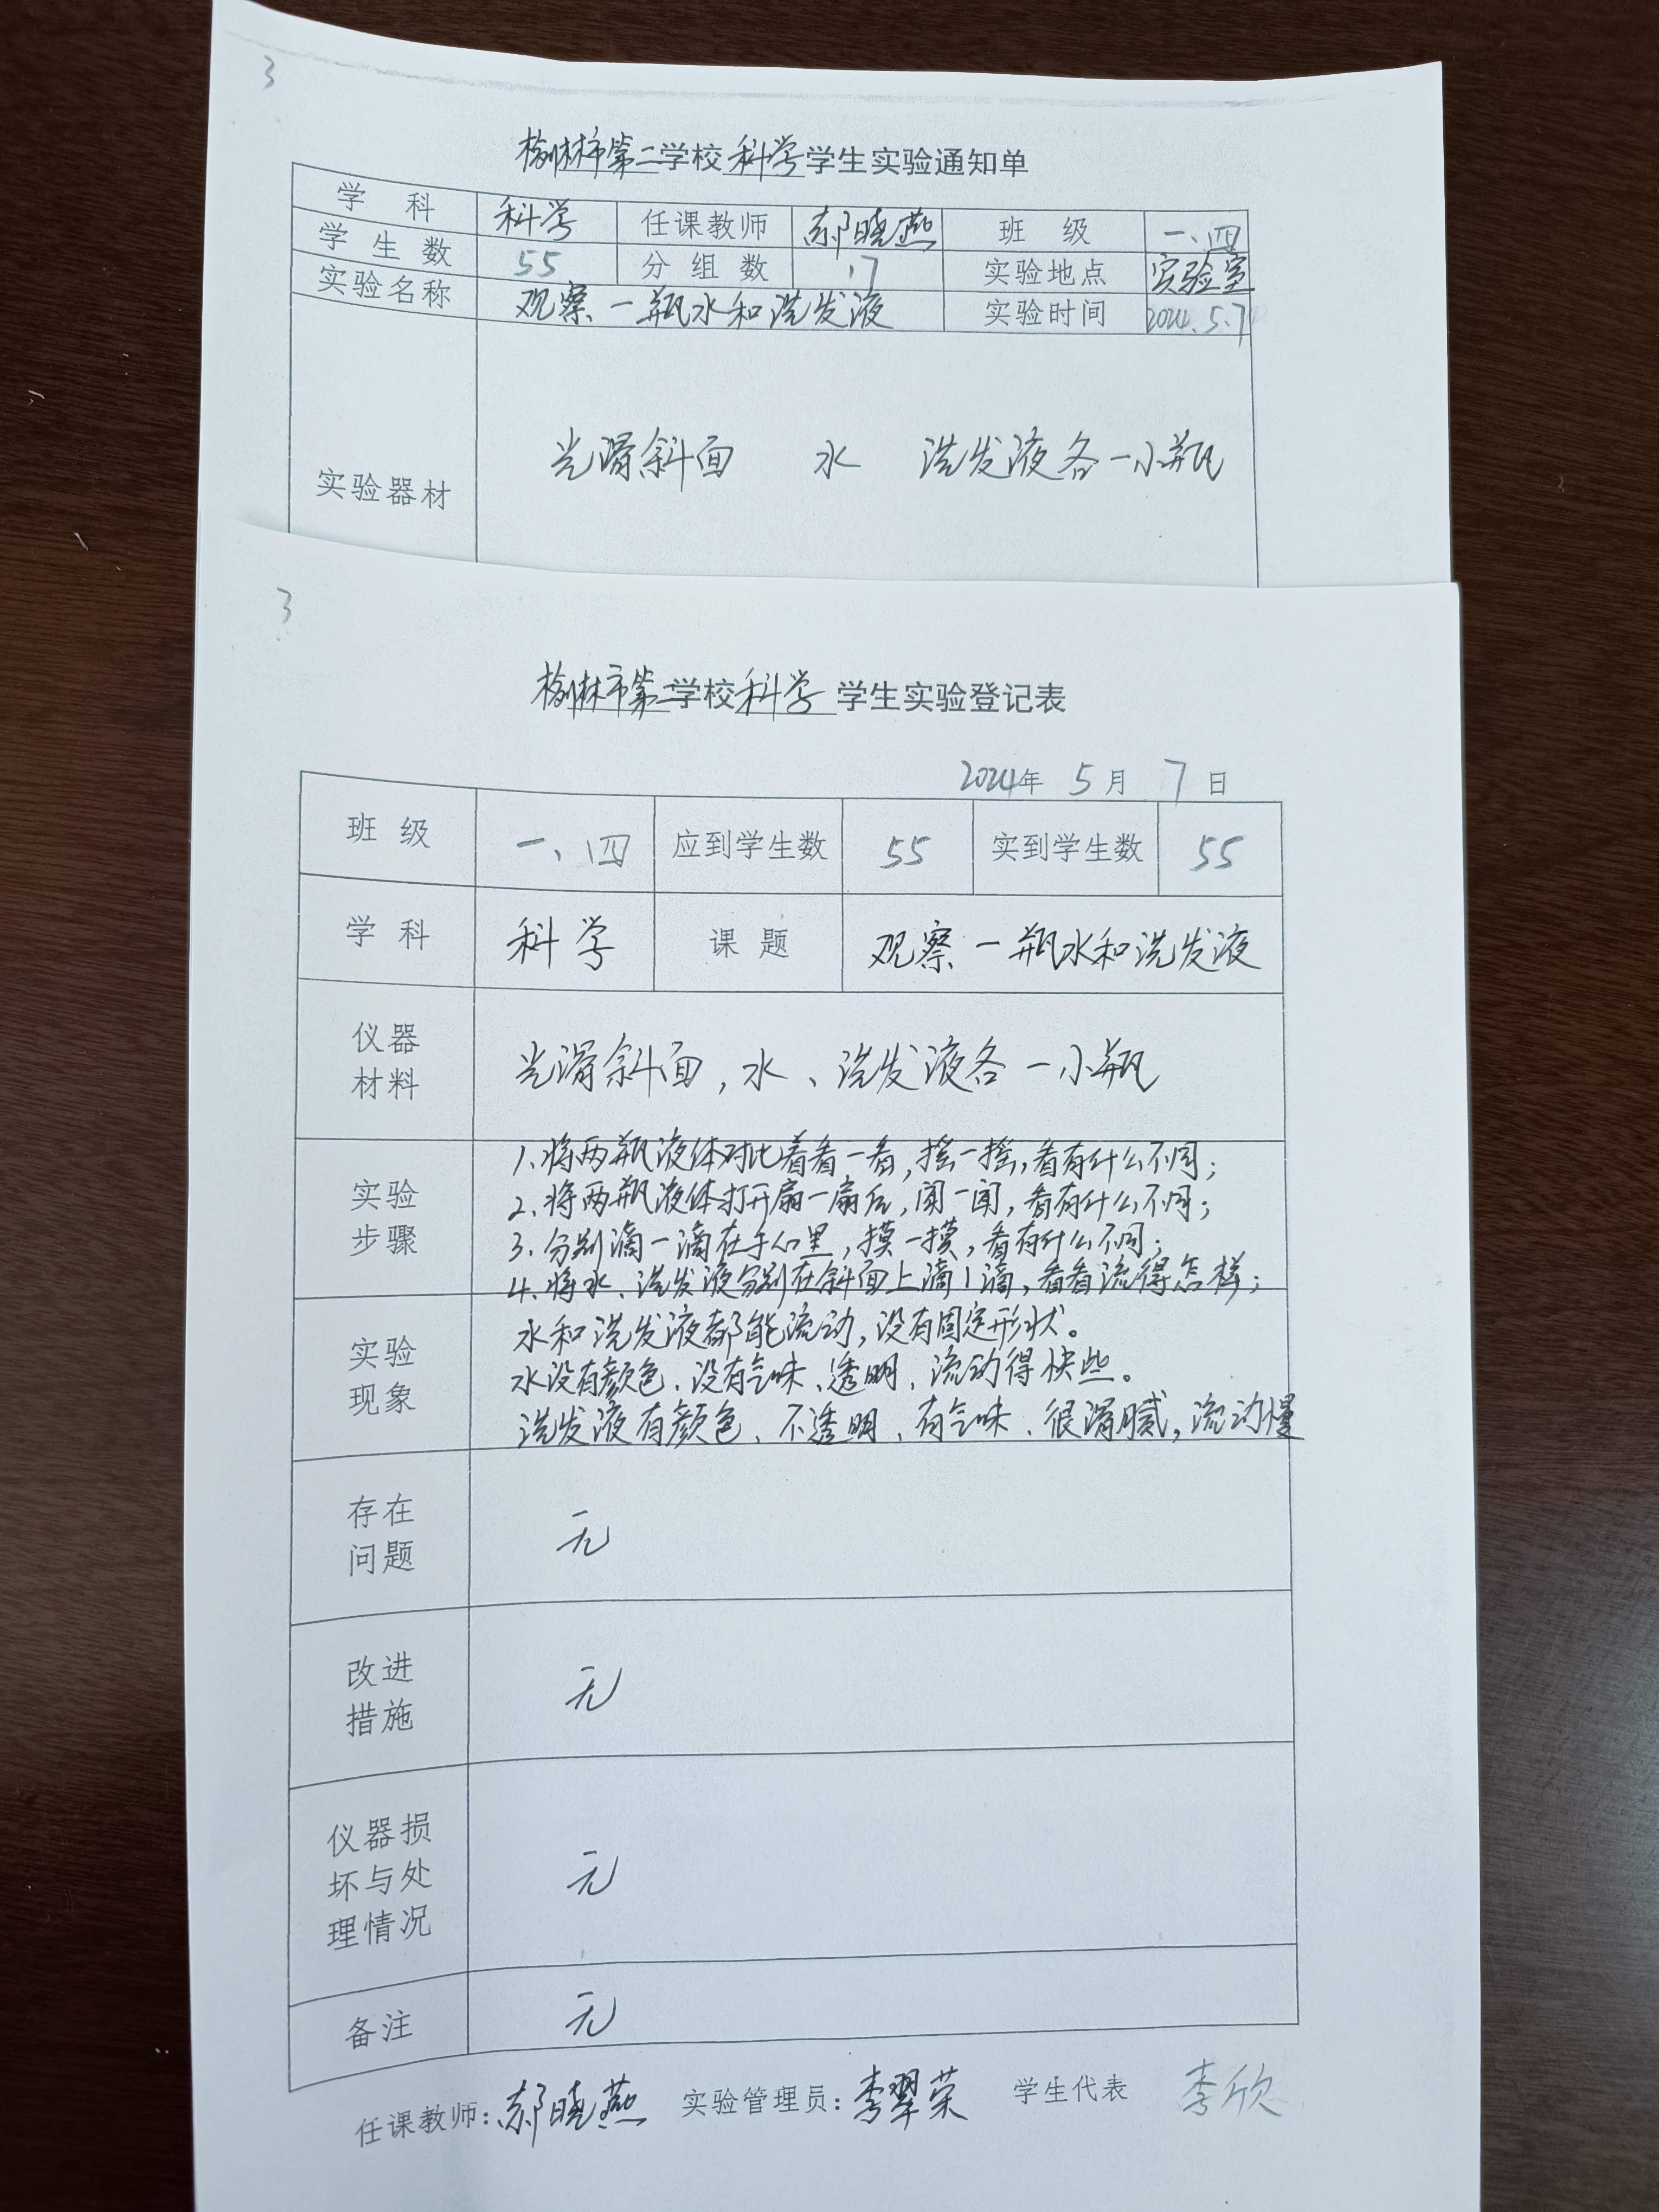 3
榆林市第二学校科学学生实验通知单
学 科 科学 任课教师 郝晓燕 班 级 一、四
学生数 55 分组数 17 实验地点 实验室
实验名称 观察一瓶水和洗发液 实验时间 2024.5.7
实验器材 光滑斜面 水 洗发液各一小瓶
3
榆林市第二学校科学学生实验登记表
2024年 5月 7日
班 级 一、四 应到学生数 55 实到学生数 55
学 科 科学 课 题 观察一瓶水和洗发液
仪器
材料
光滑斜面,水、洗发液各一小瓶
实验
步骤
1、将两瓶液体对比着看一看,摇一摇,看有什么不同;
2、将两瓶液体打开扇一扇后,闻一闻,看有什么不同;
3、分别滴一滴在手心里,摸一摸,看有什么不同;
4、将水、洗发液分别在斜面上滴1滴,看看流得怎样;
实验
现象
水和洗发液都能流动,没有固定形状。
水没有颜色、没有气味、透明、流动得快些。
洗发液有颜色、不透明、有气味、很滑腻,流动慢
存在
问题
无
改进
措施
无
仪器损
坏与处
理情况
无
备注 无
任课教师:郝晓燕 实验管理员:李翠荣 学生代表 李欣